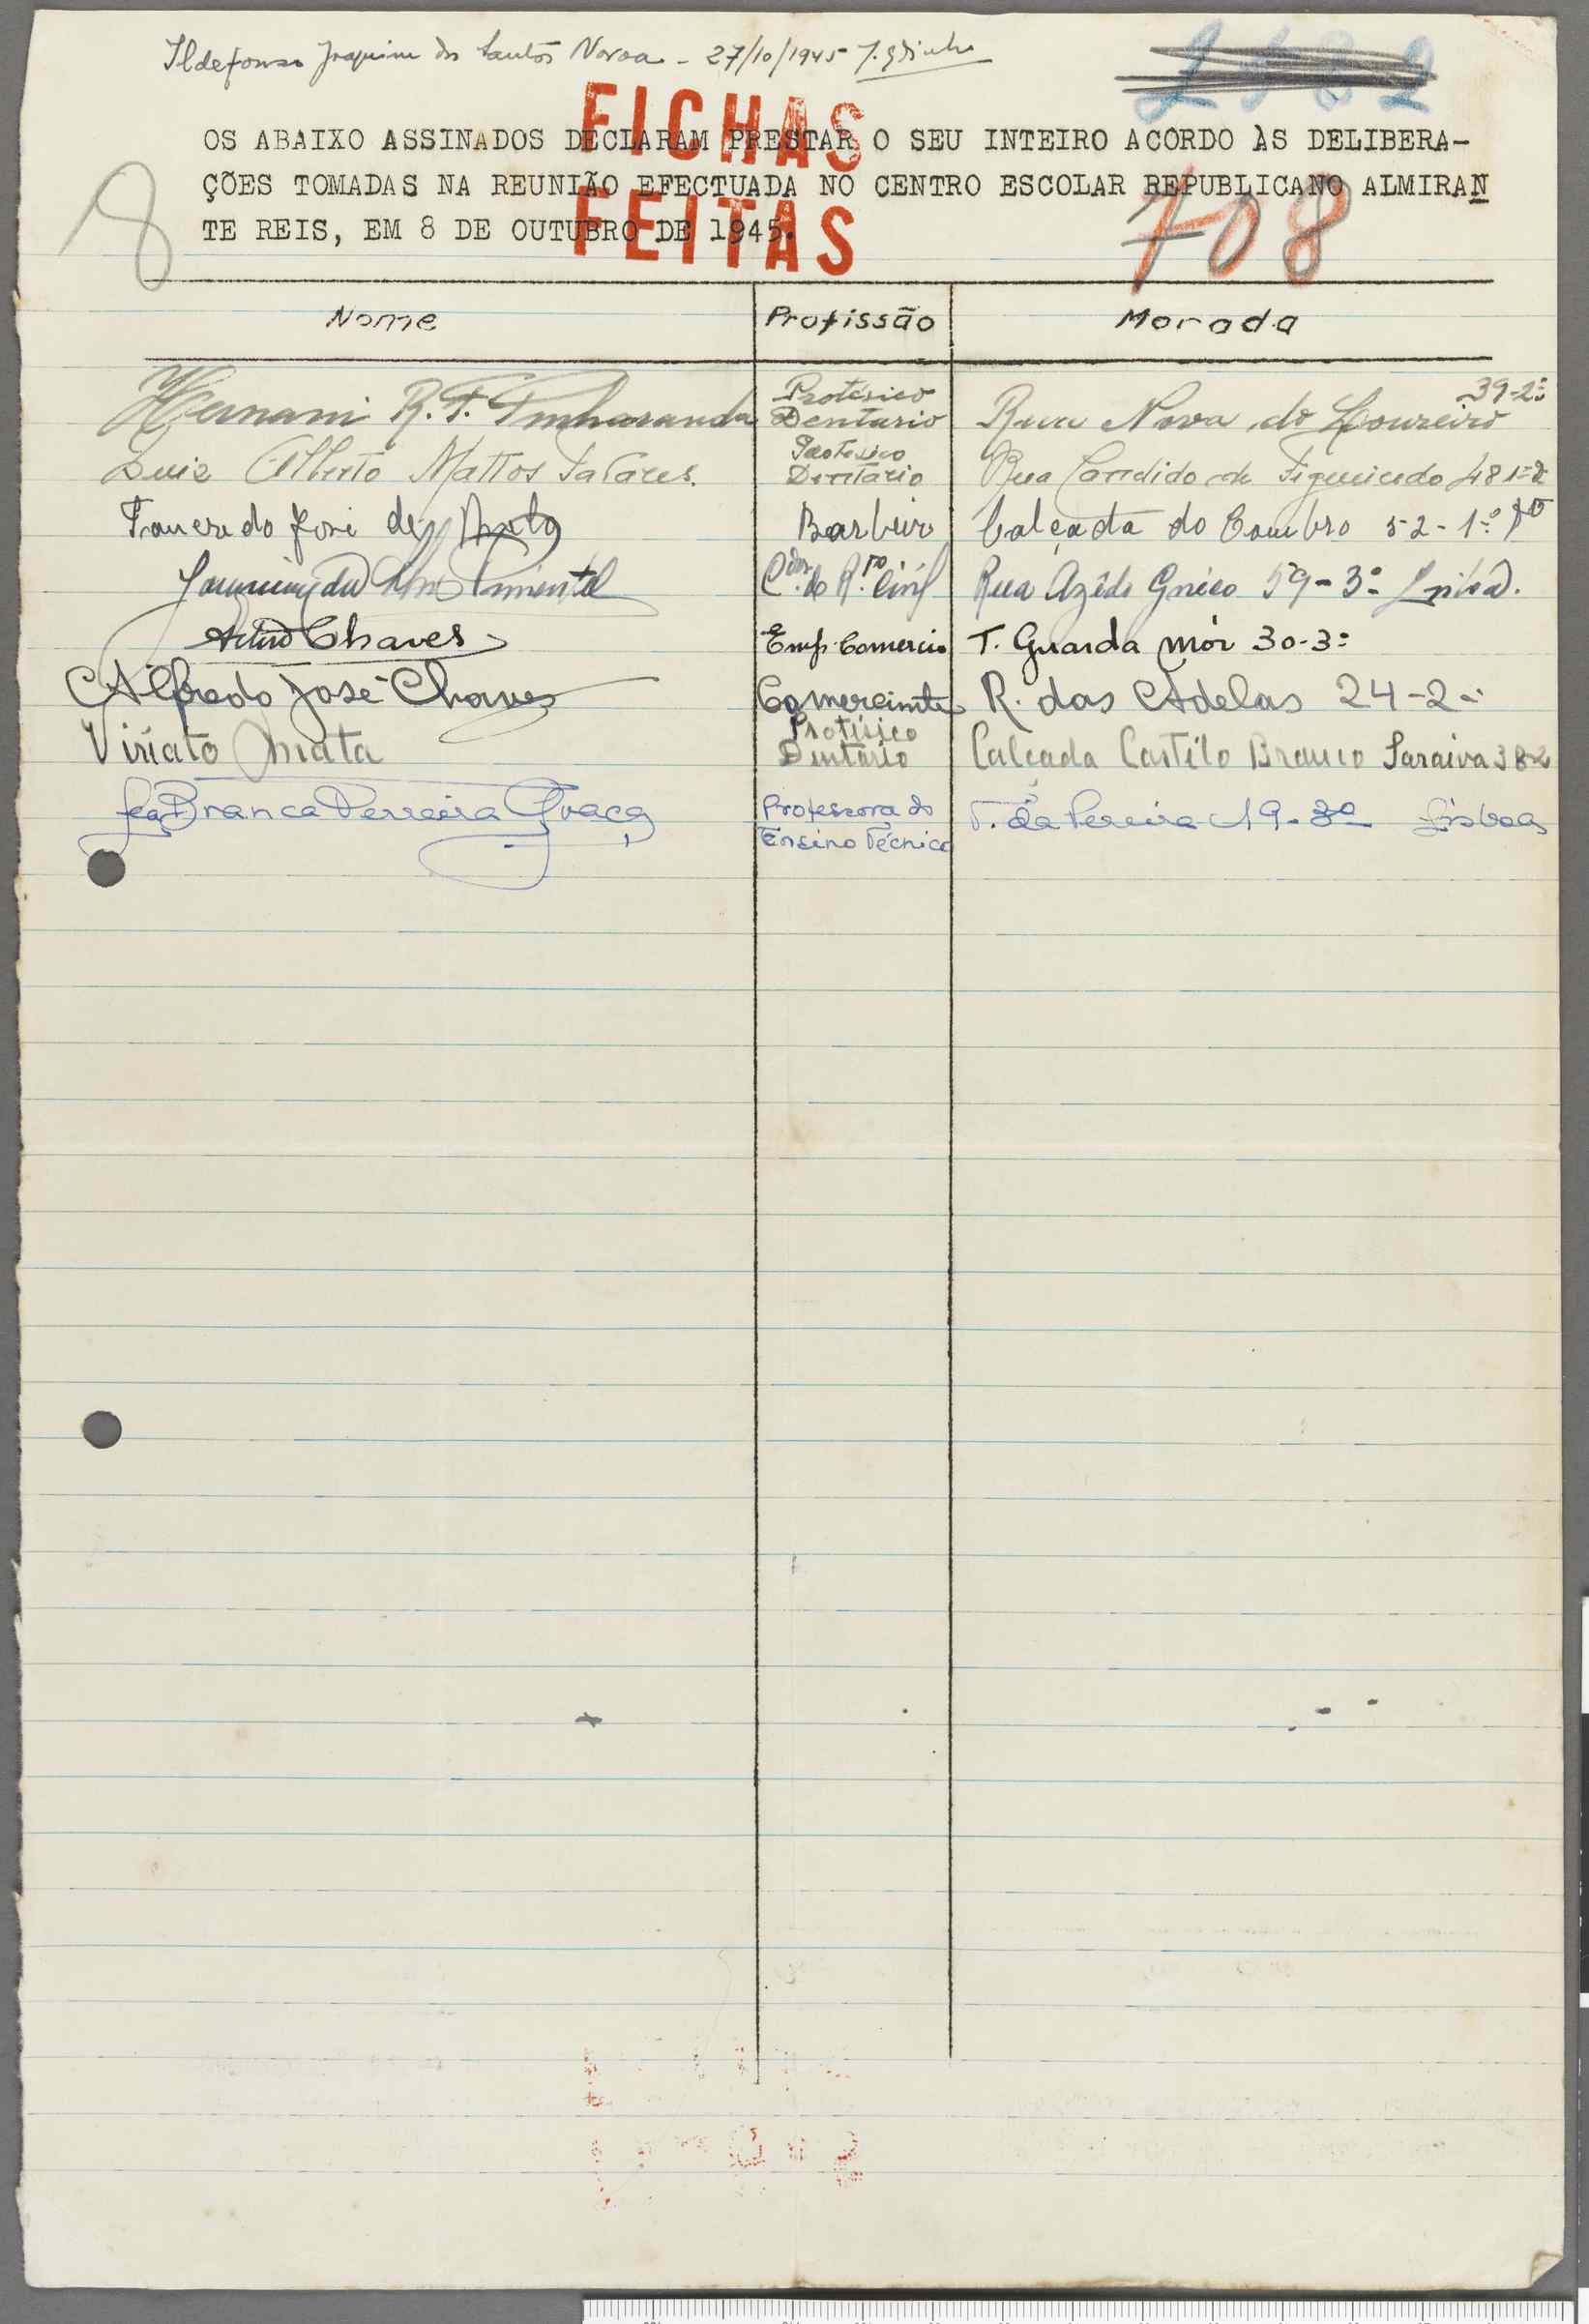 Ildefonso Joaquim dos Santos Novoa - 27/10/1945
2582
FICHAS
FEITAS
OS ABAIXO ASSINADOS DECLARAM PRESTAR O SEU INTEIRO ACORDO ÀS DELIBERA-
ÇÕES TOMADAS NA REUNIÃO EFECTUADA NO CENTRO ESCOLAR REPUBLICANO ALMIRAN
TE REIS, EM 8 DE OUTUBRO DE 1945.
8
708
Nome Profissão Morada
Hernani R. F. Pinharanda Protésico Dentario Rua Nova do Loureiro 39-2º
Luiz Alberto Mattos Tavares. Protesico Dentario Rua Candido de Figueiredo 48 1º
Tancredo José de Barbeiro Calçada do Combro 52-1º
Pimentel Rua Azêdo Gneco 59-3º Lisboa.
Artur Chaves Emp. Comercio T. Guarda Mór 30-3º
Alfredo José Chaves Comerciante R. das Adelas 24-2º
Viriato Mata Protésico Dentário Calçada Castélo Branco Saraiva 38-2
Branca Ferreira Graça Professora do Ensino Técnico T. da Pereira 19-3º Lisboa